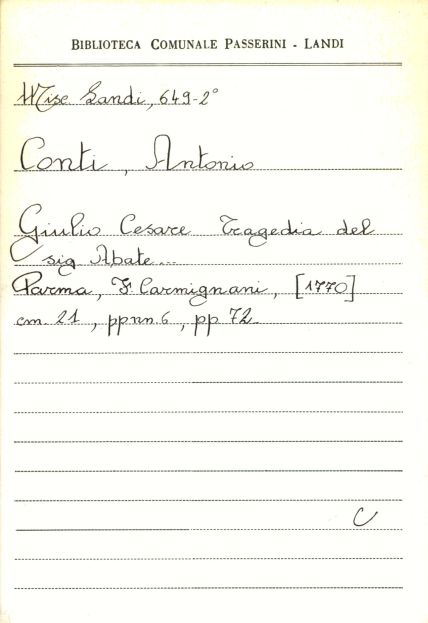 BIBLIOTECA COMUNALE PASSERINI - LANDI
Misc. Landi, 649-2°
Conti, Antonio
Giulio Cesare Tragedia del
sig Abate...
Parma, F. Carmignani, [1770]
cm. 21, ppnn. 6, pp 72
C